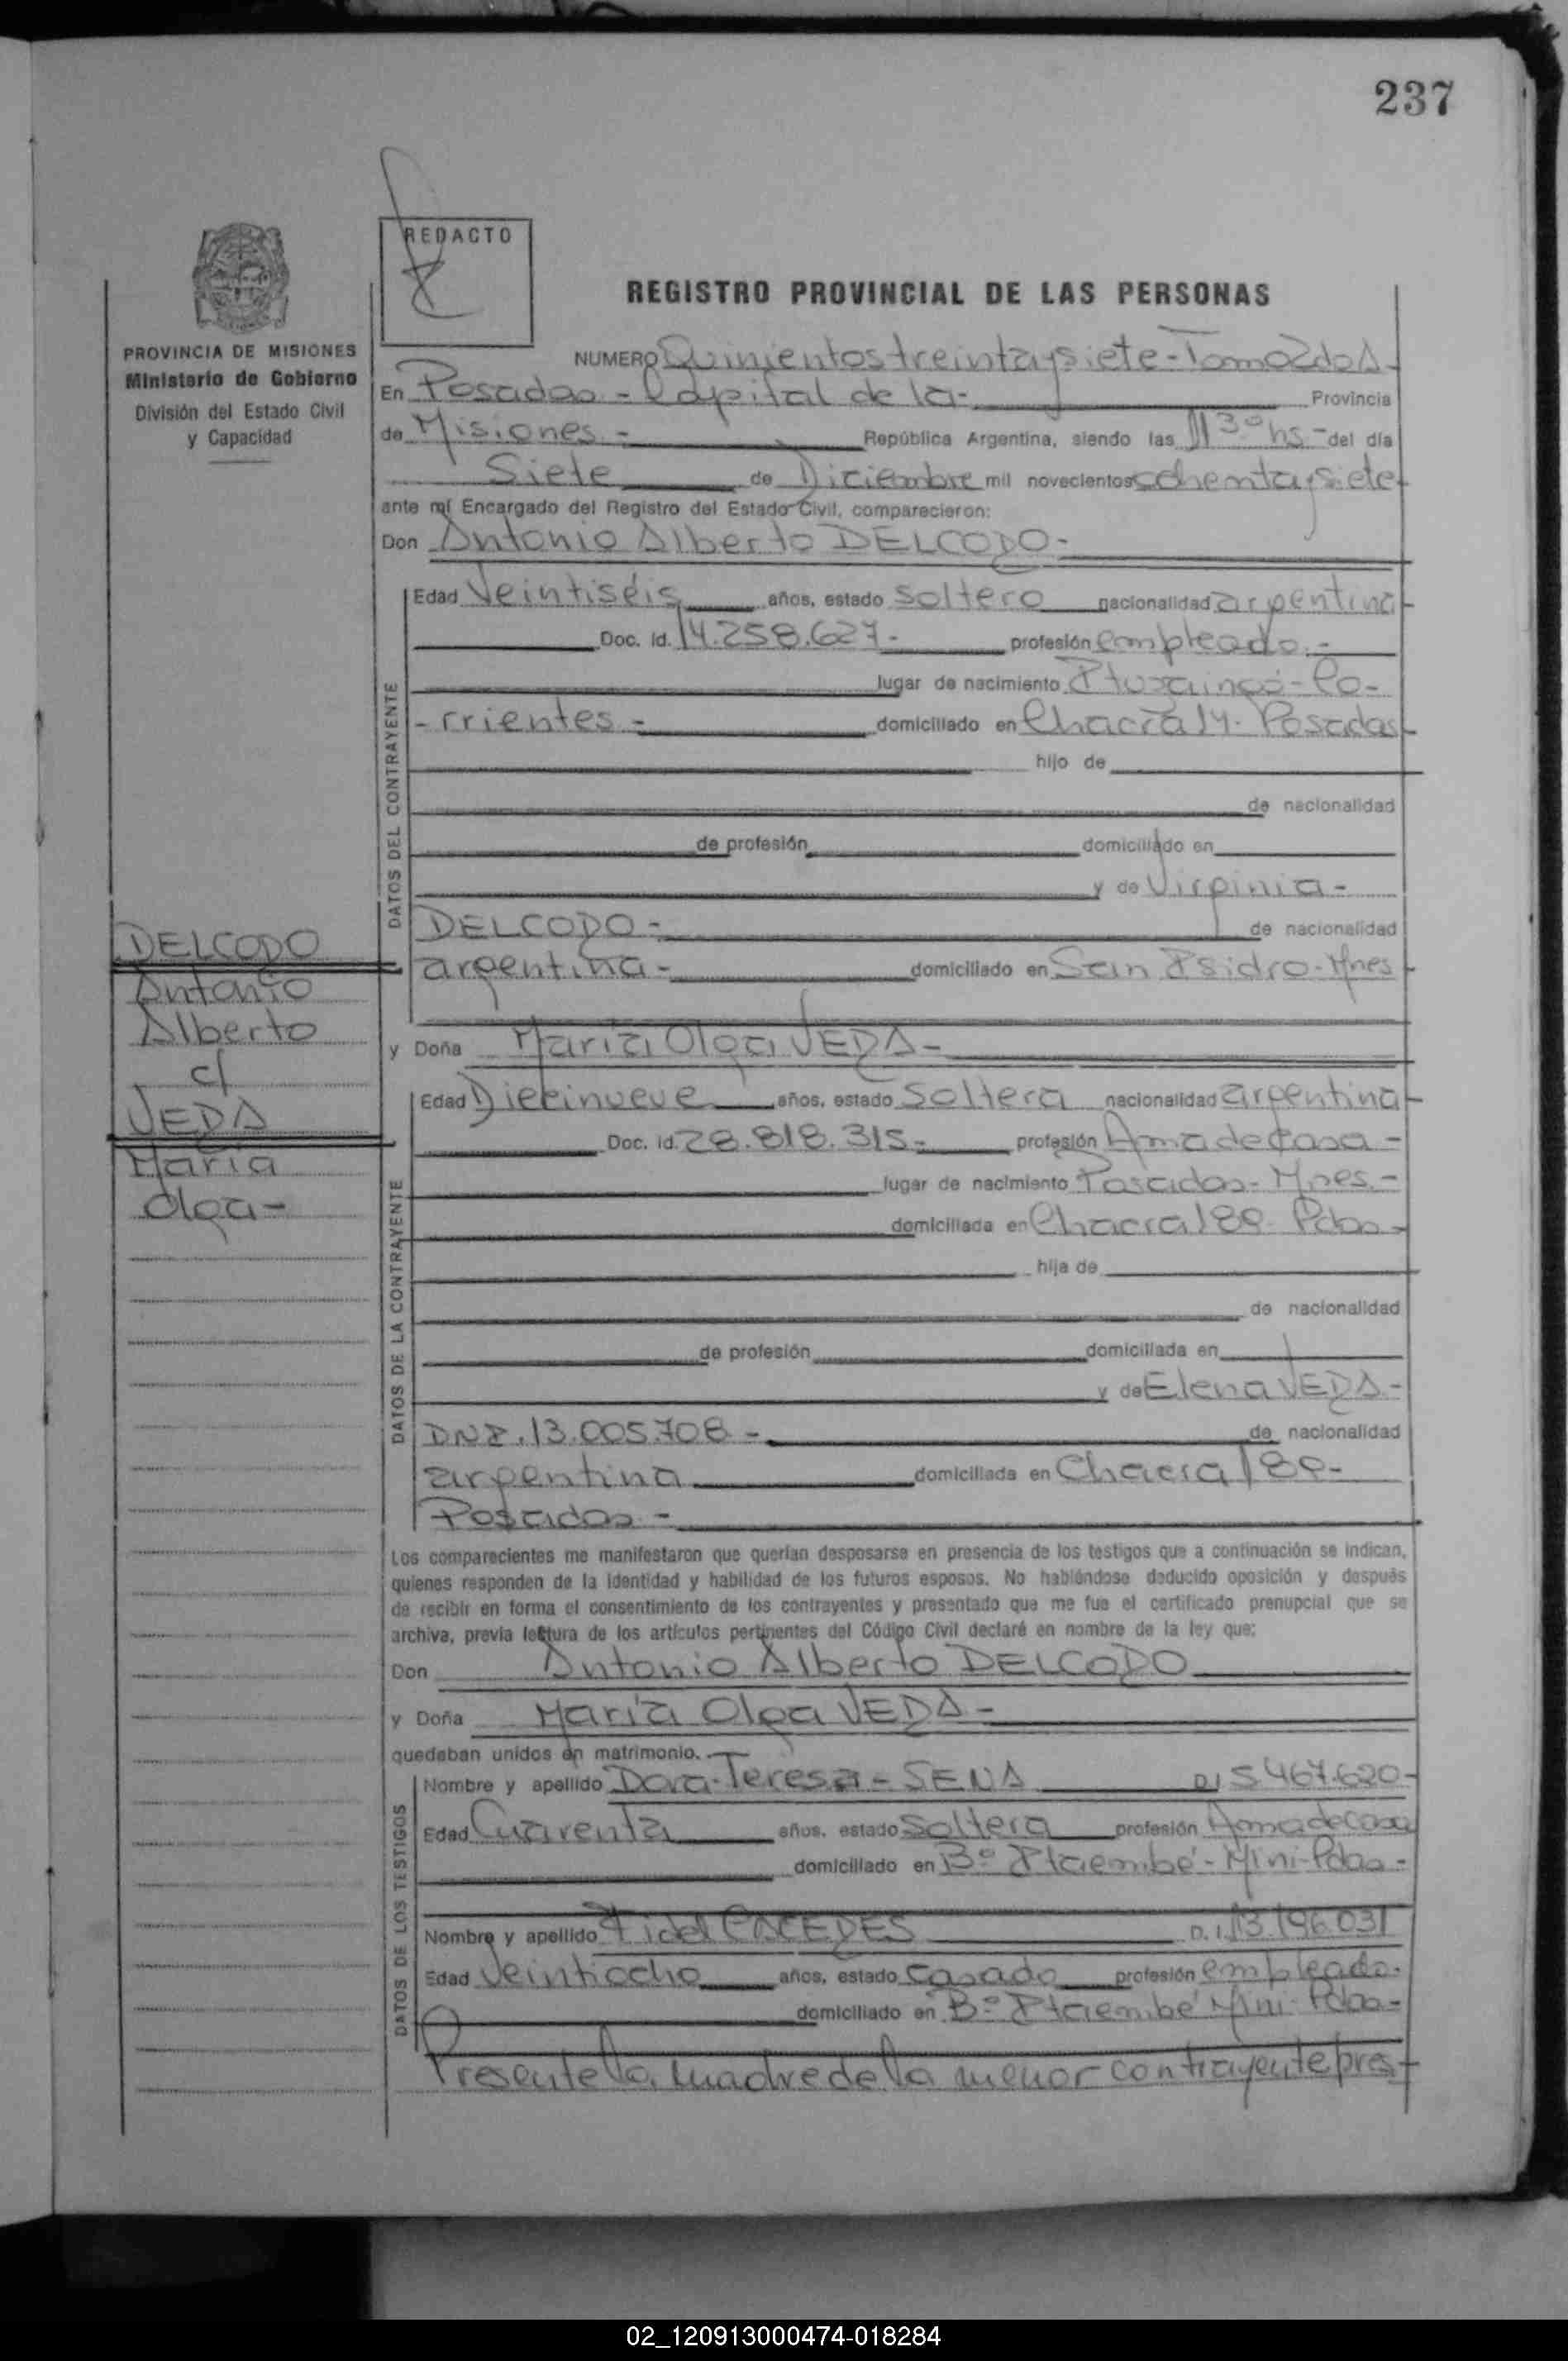 237
REDACTO
REGISTRO PROVINCIAL DE LAS PERSONAS
PROVINCIA DE MISIONES
Ministerio de Gobierno
División del Estado Civil
y Capacidad
NUMERO Quinientos treinta y siete - Tomo 2do A-
En Posadas - Capital de la- Provincia
de Misiones - República Argentina, siendo las 11 30 hs - del día
Siete de Diciembre mil novecientos ochenta y siete
ante mí Encargado del Registro del Estado Civil, comparecieron:
Don Antonio Alberto DELCODO-
DELCODO
Antonio
Alberto
c/
VEDA
María
Olga-
DATOS DEL CONTRAYENTE
Edad Veintiséis años, estado soltero nacionalidad argentina
Doc. Id. 14.258.627- profesión empleado.-
lugar de nacimiento Ituzaingó-Co-
-rrientes- domiciliado en Chacra 14- Posadas
hijo de
de nacionalidad
de profesión domiciliado en
y de Virginia-
DELCODO- de nacionalidad
argentina- domiciliado en San Isidro-Mnes
y Doña María Olga VEDA-
DATOS DE LA CONTRAYENTE
Edad Diecinueve años, estado soltera nacionalidad argentina
Doc. Id. 28.818.315- profesión Ama de casa-
lugar de nacimiento Posadas- Mnes.-
domiciliada en Chacra 189- Pdas-
hija de
de nacionalidad
de profesión domiciliada en
y de Elena VEDA-
DNI.13.005.708- de nacionalidad
argentina domiciliada en Chacra 189-
Posadas-
Los comparecientes me manifestaron que querían desposarse en presencia de los testigos que a continuación se indican,
quienes responden de la identidad y habilidad de los futuros esposos. No habiéndose deducido oposición y después
de recibir en forma el consentimiento de los contrayentes y presentado que me fue el certificado prenupcial que se
archiva, previa lectura de los artículos pertinentes del Código Civil declaré en nombre de la ley que:
Don Antonio Alberto DELCODO
y Doña María Olga VEDA-
quedaban unidos en matrimonio.
DATOS DE LOS TESTIGOS
Nombre y apellido Dora Teresa - SENA D.I 5.467.620-
Edad Cuarenta años, estado soltera profesión Ama de casa
domiciliado en Bº Itaembé-Mini-Pdas-
Nombre y apellido Fidel D.I. 13.196.031
Edad Veintiocho años, estado casado profesión empleado-
domiciliado en Bº Itaembé Mini-Pdas-
Presente la madre de la menor contrayente pres-
02_120913000474-018284